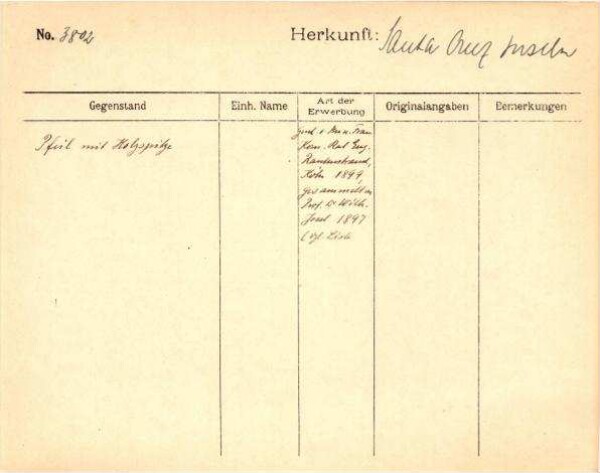 No. 3802 Herkunft: Santa Cruz Inseln
Gegenstand Einh. Name Art der Erwerbung Originalangaben Bemerkungen
Pfeil mit Holzspitze
Frau
Kom. Rat Eug.
Rautenstrauch,
Köln 1899,
gesammelt v.
Prof. Dr. Wilh.
Joest 1897